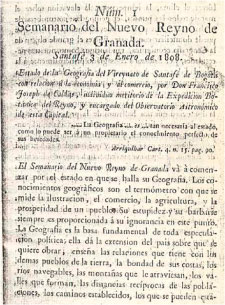 Núm. 1
Semanario del Nuevo Reyno de
Granada.
Santafé 3 de Enero de 1808.
Estado de la Geografía del Vireynato de Santafé de Bogotá,
con relacion á la economía, y al comercio, por Don Francisco
Joseph de Caldas, individuo meritorio de la Expedicion Bo-
tánica del Reyno, y encargado del Observatorio Astronómico
de esta Capital.
La Geografía es tan necesaria al estado,
como lo puede ser á un propietario el conocimiento perfecto de
sus heredades.
El Semanario del Nuevo Reyno de Granada vá á comen-
zar por el estado en que se halla su Geografía. Los co-
nocimientos geográficos son el termómetro con que se
mide la ilustracion, el comercio, la agricultura, y la
prosperidad de un pueblo. Su estupidez y su barbarie
siempre es proporcionada á su ignorancia en este punto.
La Geografía es la basa fundamental de toda especula-
cion política; ella dá la extension del pais sobre que se
quiere obrar, enseña las relaciones que tiene con los
demas pueblos de la tierra, la bondad de sus costas, los
rios navegables, las montañas que le atraviesan, los va-
lles que forman, las distancias recíprocas de las pobla-
ciones, los caminos establecidos, los que se pueden esta-